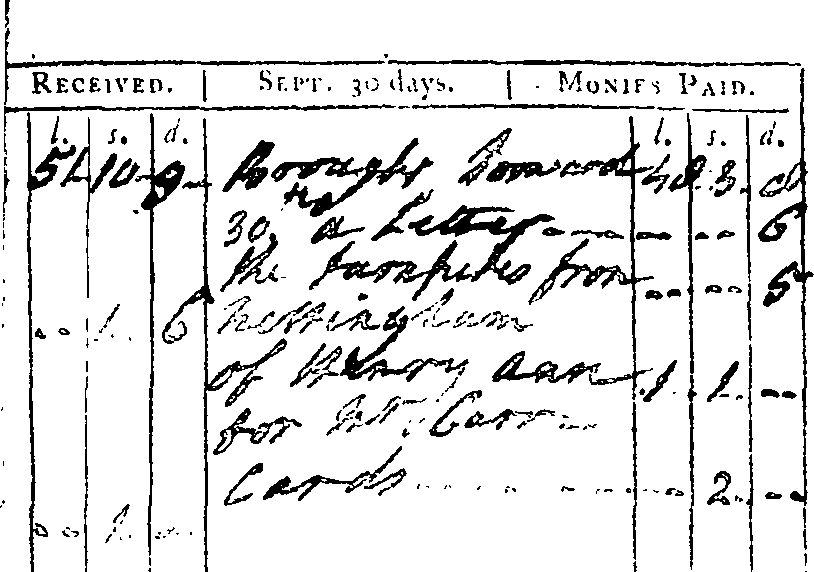 RECEIVED. | SEPT. 30 days. | MONIES PAID.
l. s. d. l. s. d.
51 10 9 Brought Forward 48 3 8
30th a Letter .. .. 6
the turnpikes from .. .. 5
.. 1. 6 Nottingham
of Henry ann 1. 1. ..
for Mr. Carr
Cards .. 2. ..
.. 1. ..